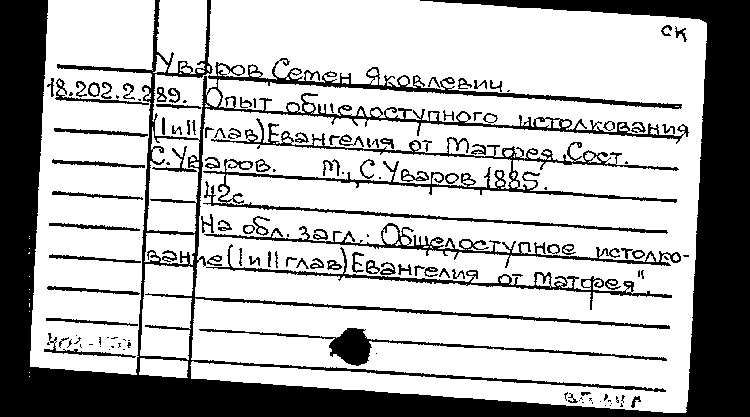 СК
Уваров, Семен Яковлевич.
18.202.2.289. Опыт общедоступного истолкования
(I и II глав) Евангелия от Матфея. Сост.
С. Уваров. М., С. Уваров, 1885.
42с.
На обл. загл.: Общедоступное истолко-
вание (I и II глав) Евангелия от Матфея".